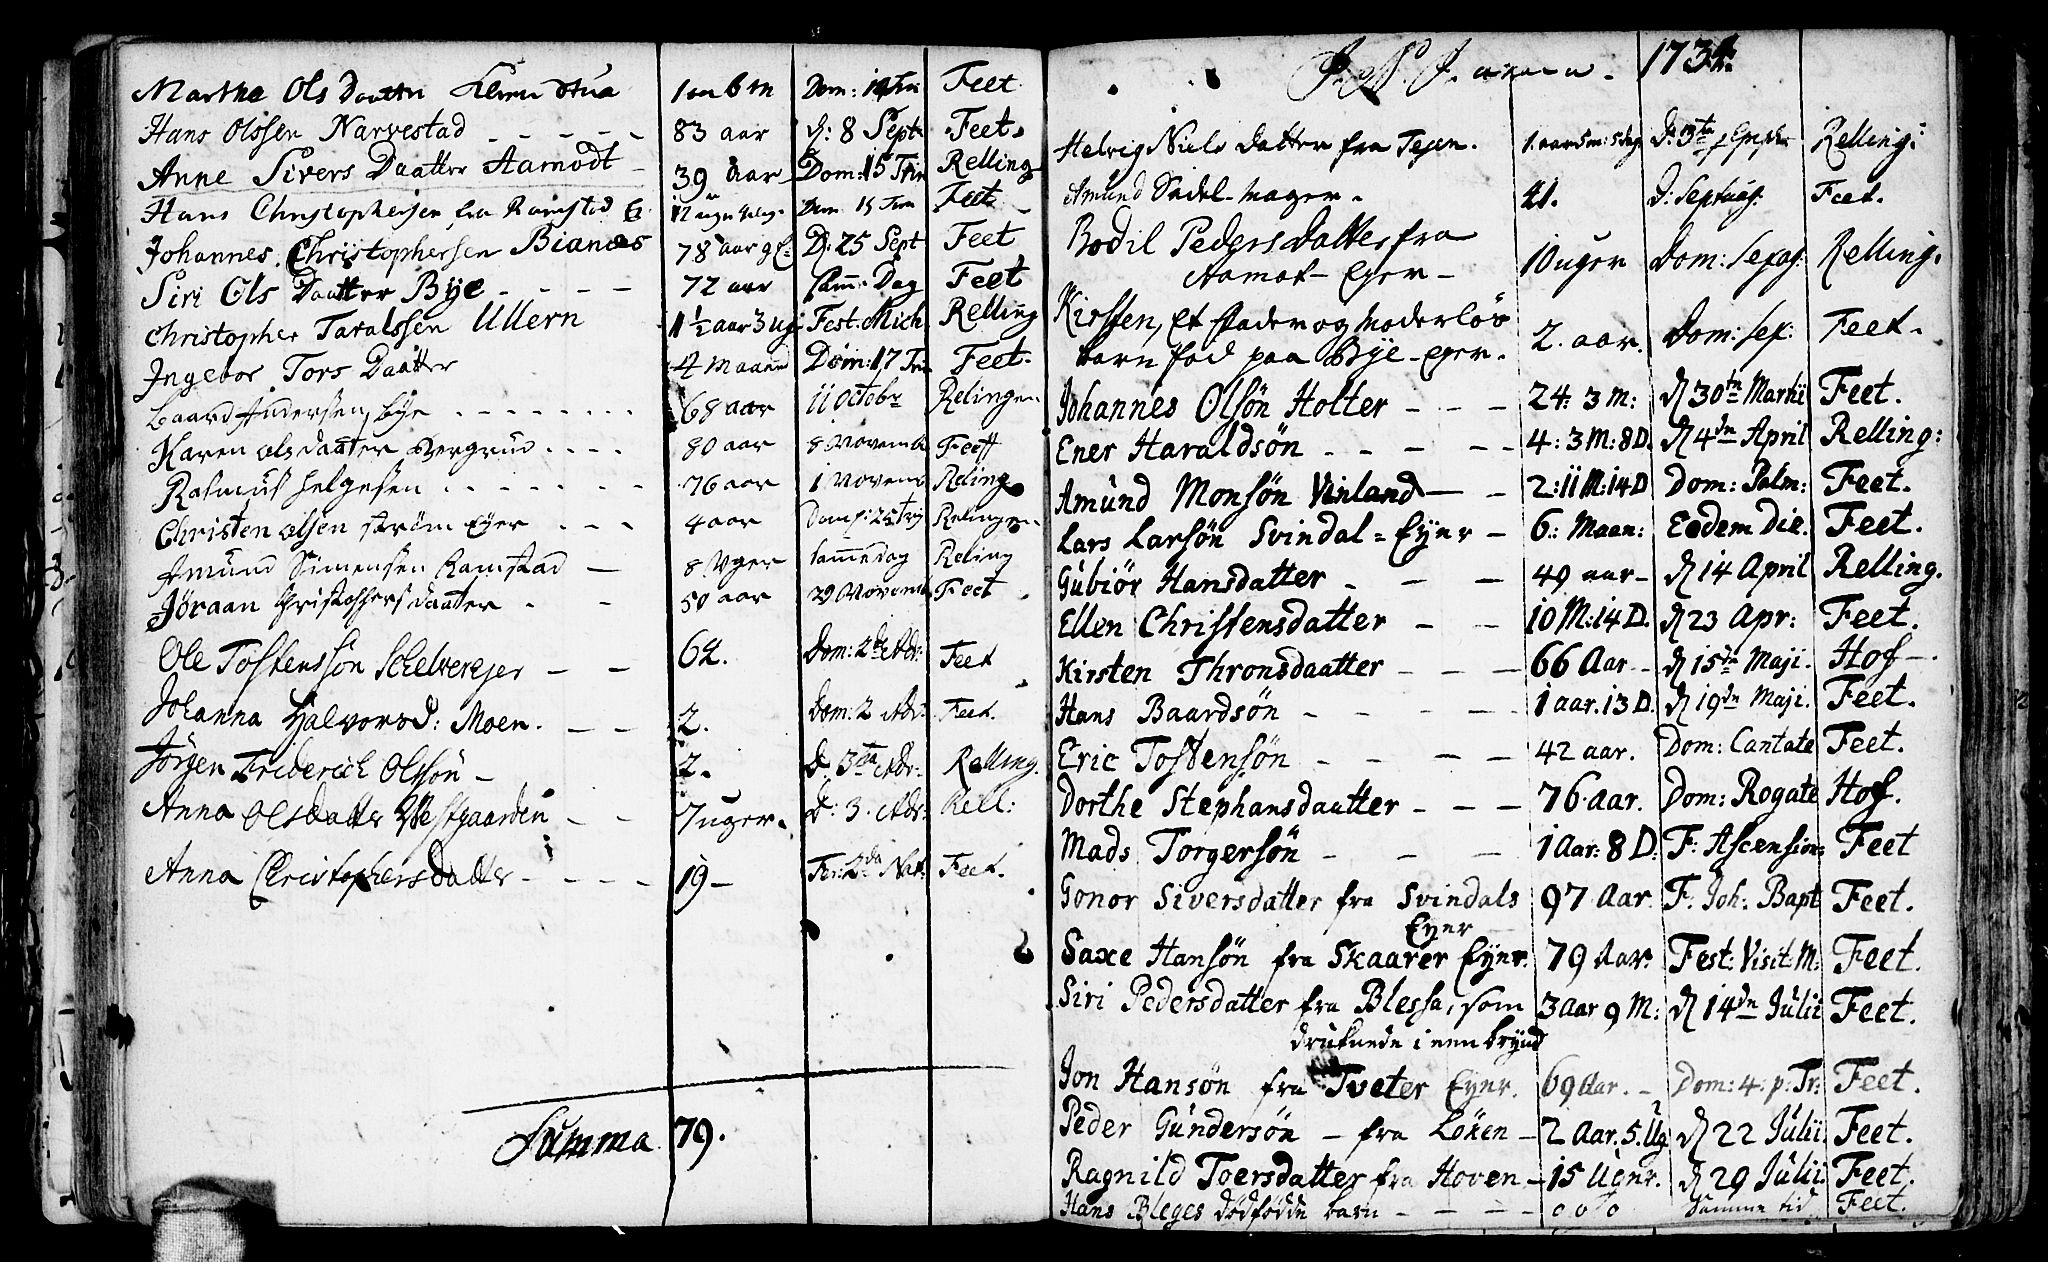 Martha Ols Daatter 1 aar 6 m Dom: 14 Trin Feet
Hans Olssen Narvestad - - - - - 83 aar d: 8 Sept Feet.
Anne Sivers Daatter Aamodt - 39 aar Dom: 15 Trin Relling
Hans Christophersen fra Ramstad E. 12 uger Dom 15 Trin Feet
Johannes Christophersen Bianes 78 aar D: 25 Sept Feet
Siri Ols Daatter Bye - - - - 72 aar samme Dag Feet
Christopher Taralssen Ullern 1 1/2 aar 3 ug Fest: Mich. Relling
Ingebor Tors Daatter 4 Maaned Dom: 17 Tri Feet.
Baard Andersen, bye - - - - - - - 68 aar 11 Octobr Relingen
Karen olsdaatter Bergrud . . . . 80 aar 8 Novemb Feet
Rasmus Helgesen . . . . . . . 76 aar 1 Novemb Reling
Christen olsen strøm Eyer - - - 4 aar Dom: 25 Trin Relingen
Amund Simensen Ramstad - 8 Uger samme dag Reling
Jöraan Christoffersdaatter - - 50 aar 29 Novemb Feet
Ole Tostenssön Schelverejer - - 62. Dom: 2de Adv: Feet
Johanna Halvorsd: Moen. - - 2. Dom: 2 Adv: Feet.
Jörgen Friderich Olssön - 2. D. 3tia Adv: Relling.
Anna Olsdatter Westgaarden - - 7 uger. D: 3. Adv: Rell:
Anna Christophersdatter - - - - 19 - Fer: 2da Nat: Feet.
Summa 79.
J. N. J. 1734.
Helvig Niels datter fra Tejen. 1. aar 5 m: 5 dag Relling:
Amund Sadel-mager. 41. D: Septuag: Feet.
Bodil Pedersdatter fra
Aamot - Eger - 10 uger Dom: Sexag: Relling.
Kirsten, Et fader og Moderløs
barn fød paa Bye-Eger. 2. aar. Dom: sex: Feet.
Johannes Olsön Holter - - - 24: 3 M: d 30te Martii Feet.
Ener Haraldsön - - - - - 4: 3 M: 8 D. d 4de April Relling:
Amund Monsön Vinland - - 2: 11 M: 14 D Dom: Palm: Feet.
Lars Larsön Svindal = Eyer - 6: Maan: Eodem Die. Feet.
Gubiör Hansdatter - - - 49 aar - d 14 April Relling.
Ellen Christensdatter - - 10 M: 14 D. d 23 Apr: Feet.
Kirsten Thronsdaatter - - - 66 Aar - d 15de Maji. Hof -.
Hans Baardsön - - - - - 1 aar. 13 D. d 19de Maji. Feet.
Eric Tostensön - - - - 42 aar. Dom: Cantate Feet.
Dorthe Stephansdaatter - - - 76 aar. Dom: Rogate Hof.
Mads Torgersön - - - 1 Aar: 8 D. F: Ascension: Feet
Gonor Siversdatter fra Svindals
Eyer 97 Aar F: Joh: Bapt Feet.
Saxe Hansön fra Skaarer Eyer. 79 Aar. Fest: Visit: M: Feet.
Siri Pedersdatter fra Blessa, som 3 Aar 9 M: d 14de Julii Feet.
druknede i een brynd
Jon Hansön fra Tveter Eyer. 69 Aar. - Dom: 4: p: Tr: Feet.
Peder Gundersön - fra Löken - 2 Aar. 5. Ug d 22 Julii Feet.
Ragnild Toersdatter fra Hoven - 15 Uger. d 29 Julii Feet.
Hans Bleges dødfødde barn - - - - 0 0 0 samme tid Feet.